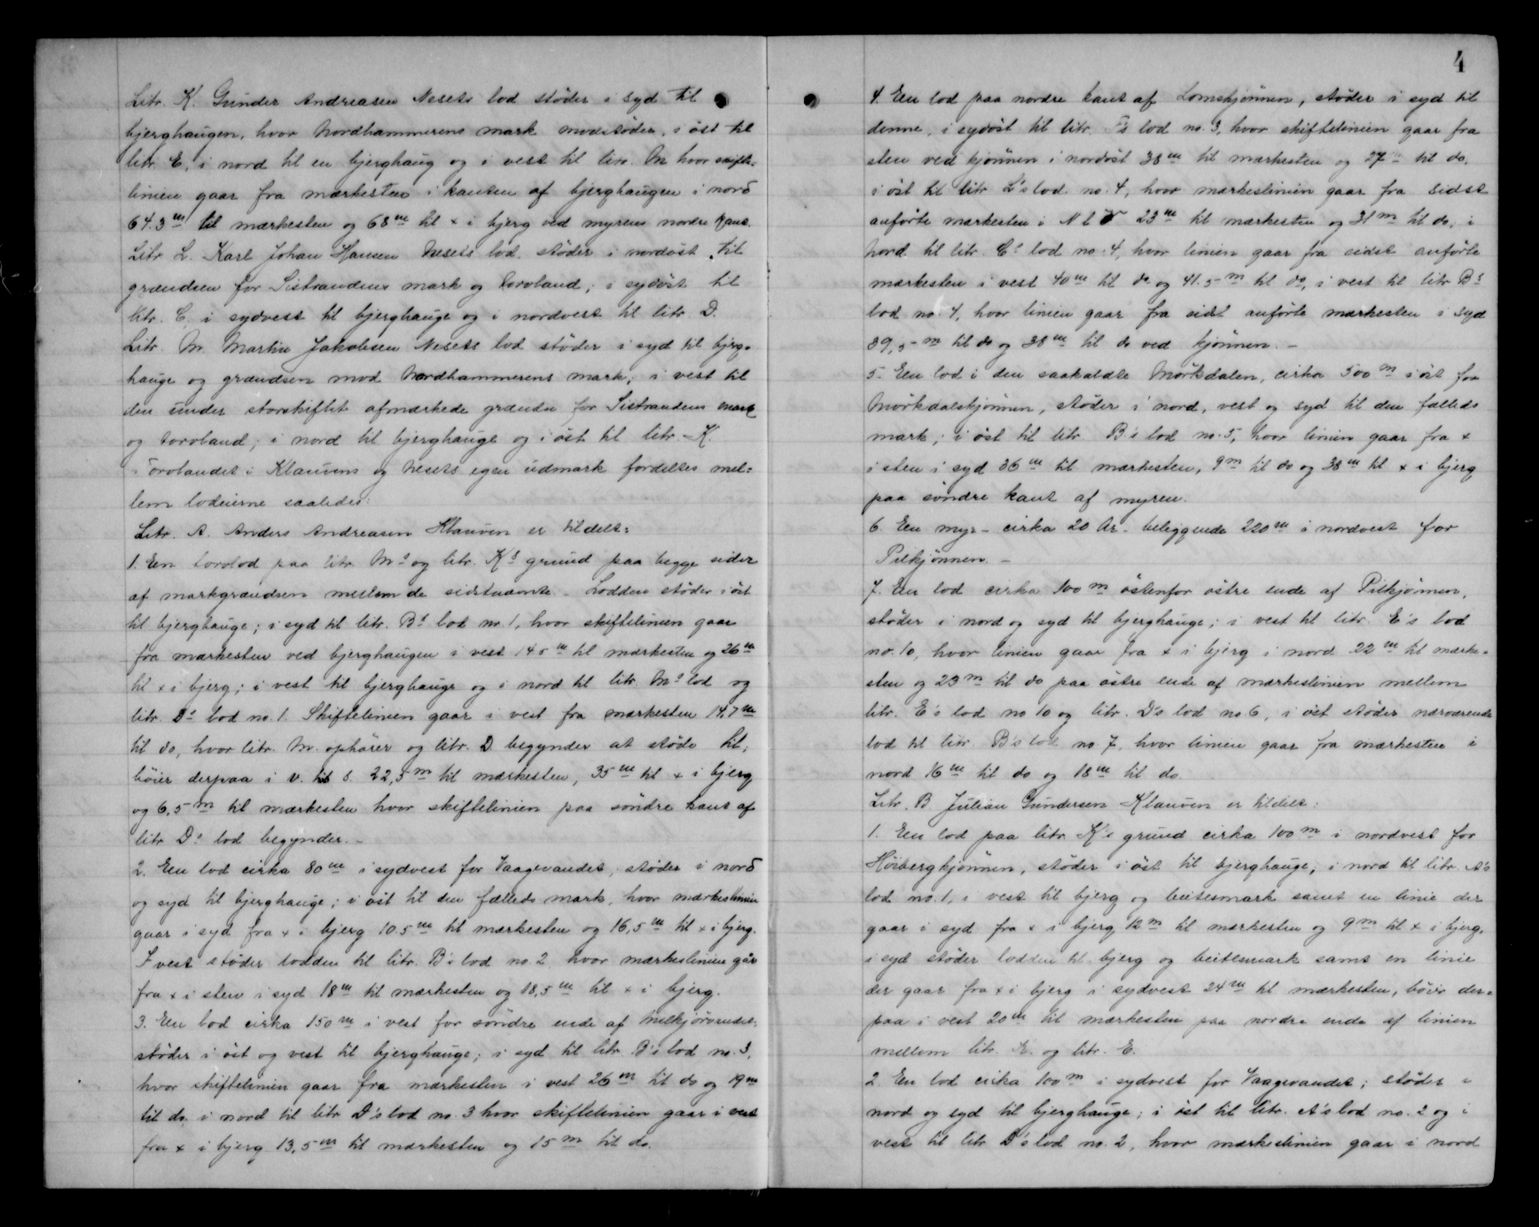 Litr. K. Gunder Andreasen Nesets lod støder i syd til
bjerghaugen, hvor Nordhammerens mark modstøder, i øst til
litr. E, i nord til en bjerghaug og i vest til litr. M hvor skifte-
linien gaar fra mærkesten i kanten af bjerghaugen i nord
64.3 m til mærkesten og 68 m til x i bjerg ved myrens nordre kant.
Litr. L. Karl Johan Hansen Nesets lod støder i nordøst til
grændsen for Sistrandens mark og torvland; i sydøst til
litr. C i sydvest til bjerghauge og i nordvest til litr. D.
Litr. M. Martin Jakobsen Nesets lod støder i syd til bjerg-
hauge og grændsen mod Nordhammerens mark; i vest til
den under storskiftet afmærkede grændse for Sistrandens mark
og torvland; i nord til bjerghauge og i øst til litr. K.
Torvlandet i Klauvens og Nesets egen udmark fordeltes mel-
lem lodeierne saaledes:
Litr. A. Anders Andreasen Klauven er tildelt:
1. En torvlod paa litr. M's og litr. K's grund paa begge sider
af markgrændsen mellem de sidstnævnte. Lodden støder i øst
til bjerghauge; i syd til litr. B's lod no 1, hvor skiftelinien gaar
fra mærkesten ved bjerghaugen i vest 14.5 m til mærkesten og 26 m
til x i bjerg; i vest til bjerghauge og i nord til litr. M's lod og
litr. D's lod no. 1. Skiftelinien gaar i vest fra mærkesten 14,7 m
til do, hvor litr. M. ophører og litr. D begynder at støde til,
bøier derpaa i v. til s. 22,5 m til mærkesten, 35 m til x i bjerg
og 6,5 m til mærkesten hvor skiftelinien paa søndre kant af
litr D's lod begynder. -
2. En lod cirka 80 m i sydvest for Vaagevandet, støder i nord
og syd til bjerghauge; i øst til den fælleds mark, hvor mærkeslinien
gaar i syd fra x i bjerg 10.5 m til mærkesten og 16,5 m til x i bjerg.
I vest støder lodden til litr. B's lod no. 2 hvor mærkeslinien går
fra x i sten i syd 18 m til mærkesten og 18,5 m til x i bjerg.
3. En lod cirka 150 m i vest for søndre ende af
støder i øst og vest til bjerghauge; i syd til litr B's lod no. 3,
hvor skiftelinien gaar fra mærkesten i vest 26 m til do og 19 m
til do i nord til litr D's lod no. 3 hvor skiftelinien gaar i vest
fra x i bjerg 13,5 m til mærkesten og 15 m til do.
4
4. En lod paa nordre kant af Lomskjønnen, støder i syd til
denne, i sydøst til litr. F's lod no. 3, hvor skiftelinien gaar fra
sten ved kjønnen i nordøst 38 m til mærkesten og 27 m til do.
i øst til litr L's lod no. 4, hvor mærkeslinien gaar fra sidst
anførte mærkesten i N t V 23 m til mærkesten og 31 m til do, i
nord til litr. C's lod no. 4, hvor linien gaar fra sidst anførte
mærkesten i vest 40 m til do og 41.5 m til do, i vest til litr B's
lod no. 4, hvor linien gaar fra sidst anførte mærkesten i syd
39,5 m til do og 38 m til do ved kjønnen. -
5. En lod i den saakaldte Mørkdalen, cirka 500 m i øst for
Mørkdalskjønnen, støder i nord, vest og syd til den fælleds
mark; i øst til litr. B's lod no. 5, hvor linien gaar fra x
i sten i syd 36 m til mærkesten, 9 m til do og 38 m til x i bjerg
paa søndre kant af myren.
6. En myr - cirka 20 Ar. beliggende 220 m i nordvest for
Pilkjønnen. -
7. En lod cirka 100 m østenfor østre ende af Pilkjønnen,
støder i nord og syd til bjerghauge; i vest til litr. E's lod
no. 10, hvor linien gaar fra x i bjerg i nord 22 m til mærke-
sten og 23 m til do paa østre ende af mærkeslinien mellem
litr. E's lod no 10 og litr. D's lod no 6, i øst støder nærværende
lod til litr. B's lod no 7, hvor linien gaar fra mærkesten i
nord 16 m til do og 18 m til do.
Litr. B. Julian Gundersen Klauven er tildelt:
1. En lod paa litr. K's grund cirka 100 m i nordvest for
Høibergkjønnen, støder i øst til bjerghauge; i nord til litr. A's
lod no. 1, i vest til bjerg og beitesmark samt en linie der
gaar i syd fra x i bjerg 12 m til mærkesten og 9 m til x i bjerg,
i syd støder lodden til bjerg og beitesmark samt en linie
der gaar fra x i bjerg i sydvest 24 m til mærkesten, bøier der-
paa i vest 20 m til mærkesten paa nordre ende af linien
mellem litr. K. og litr. E.
2. En lod cirka 100 m i sydvest for Vaagevandet; støder i
nord og syd til bjerghauge; i øst til litr. A's lod no. 2 og i
vest til litr D's lod no. 2, hvor mærkeslinien gaar i nord